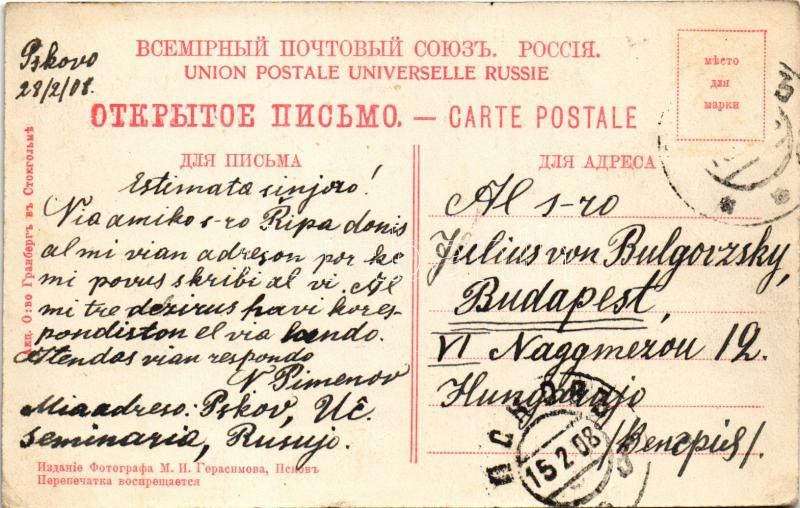 Pskovo
28/2/08.
ВСЕМІРНЫЙ ПОЧТОВЫЙ СОЮЗЪ. РОССІЯ.
UNION POSTALE UNIVERSELLE RUSSIE
ОТКРЫТОЕ ПИСЬМО. — CARTE POSTALE
мѣсто
для
марки
ДЛЯ ПИСЬМА
Estimata sinjoro!
Via amiko s-ro Ripa donis
al mi vian adreson por ke
mi povus skribi al vi. Al
mi tre dezirus havi kores-
pondiston el via lando.
Atendas vian respondo
N Pimenov
Mia adreso: Pskov, Uĉ.
seminaria, Rusujo.
ДЛЯ АДРЕСА
Al s-ro
Julius von Bulgovzsky,
Budapest,
VI Naggmezou 12.
Hungarujo
/Венгрія/.
ПСКОВЪ
15 2 08
Изданіе Фотографа М. И. Герасимова, Псковъ
Перепечатка воспрещается
Акц. О:во Гранбергъ въ Стокгольмѣ